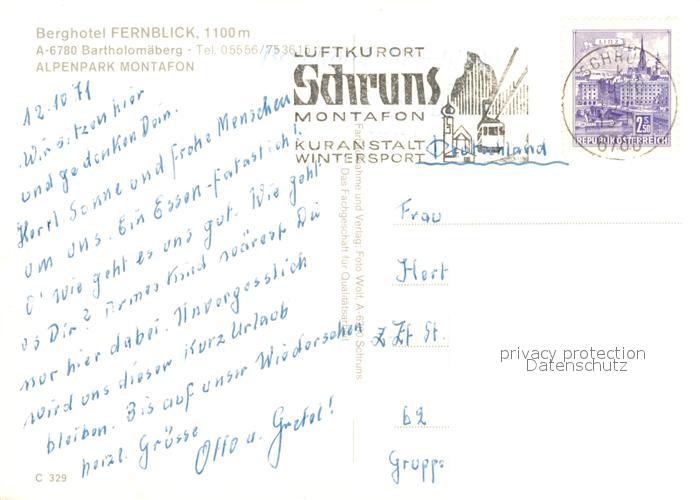 Berghotel FERNBLICK, 1100 m
A-6780 Bartholomäberg - Tel. 05556/753615
ALPENPARK MONTAFON
12.10.71
Wir sitzen hier
und gedenken Dein.
Herrl. Sonne und frohe Menschen
um uns. Ein Essen - fatastich!
O' wie geht es uns gut. Wie geht
es Dir? Armes Kind wärest Du
nur hier dabei. Unvergesslich
wird uns dieser Kurz Urlaub
bleiben. Bis auf unser Wiedersehen
herzl. Grüsse
Otto u. Gretel!
C 329
LUFTKURORT
Schruns
MONTAFON
KURANSTALT
WINTERSPORT
LINZ
2.50
REPUBLIK ÖSTERREICH
SCHRUNS
6780
Deutschland
Frau
Hert
z Zt St.
62
Grupp
Farbaufnahme und Verlag: Foto Wolf, A-6780 Schruns
Das Fachgeschäft für Qualitäts
privacy protection
Datenschutz